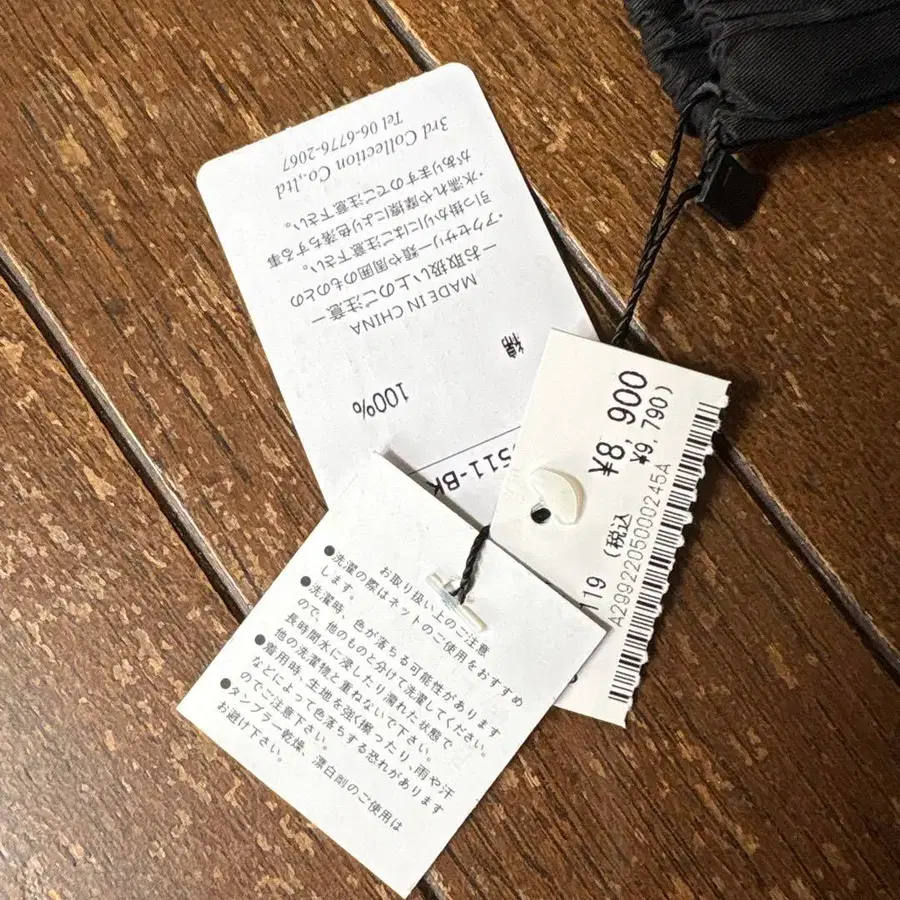 511-BK
100%
綿
MADE IN CHINA
ーお取扱い上のご注意ー
・アクセサリー類や周囲のものとの
引っ掛かりにはご注意下さい。
・水濡れや摩擦により色落ちする事
がありますのでご注意下さい。
3rd Collection Co.,ltd
Tel 06-6776-2067
¥8,900
(税込 ¥9,790)
119
A2992205000245A
お取り扱い上のご注意
●洗濯の際はネットのご使用をおすすめ
します。
●洗濯時、色が落ちる可能性があります
ので、他のものと分けて洗濯してください。
長時間水に浸したり濡れた状態で
他の洗濯物と重ねないで下さい。
●着用時、生地を強く擦ったり、雨や汗
などによって色落ちする恐れがあります
のでご注意下さい。
●タンブラー乾燥、漂白剤のご使用は
お避け下さい。